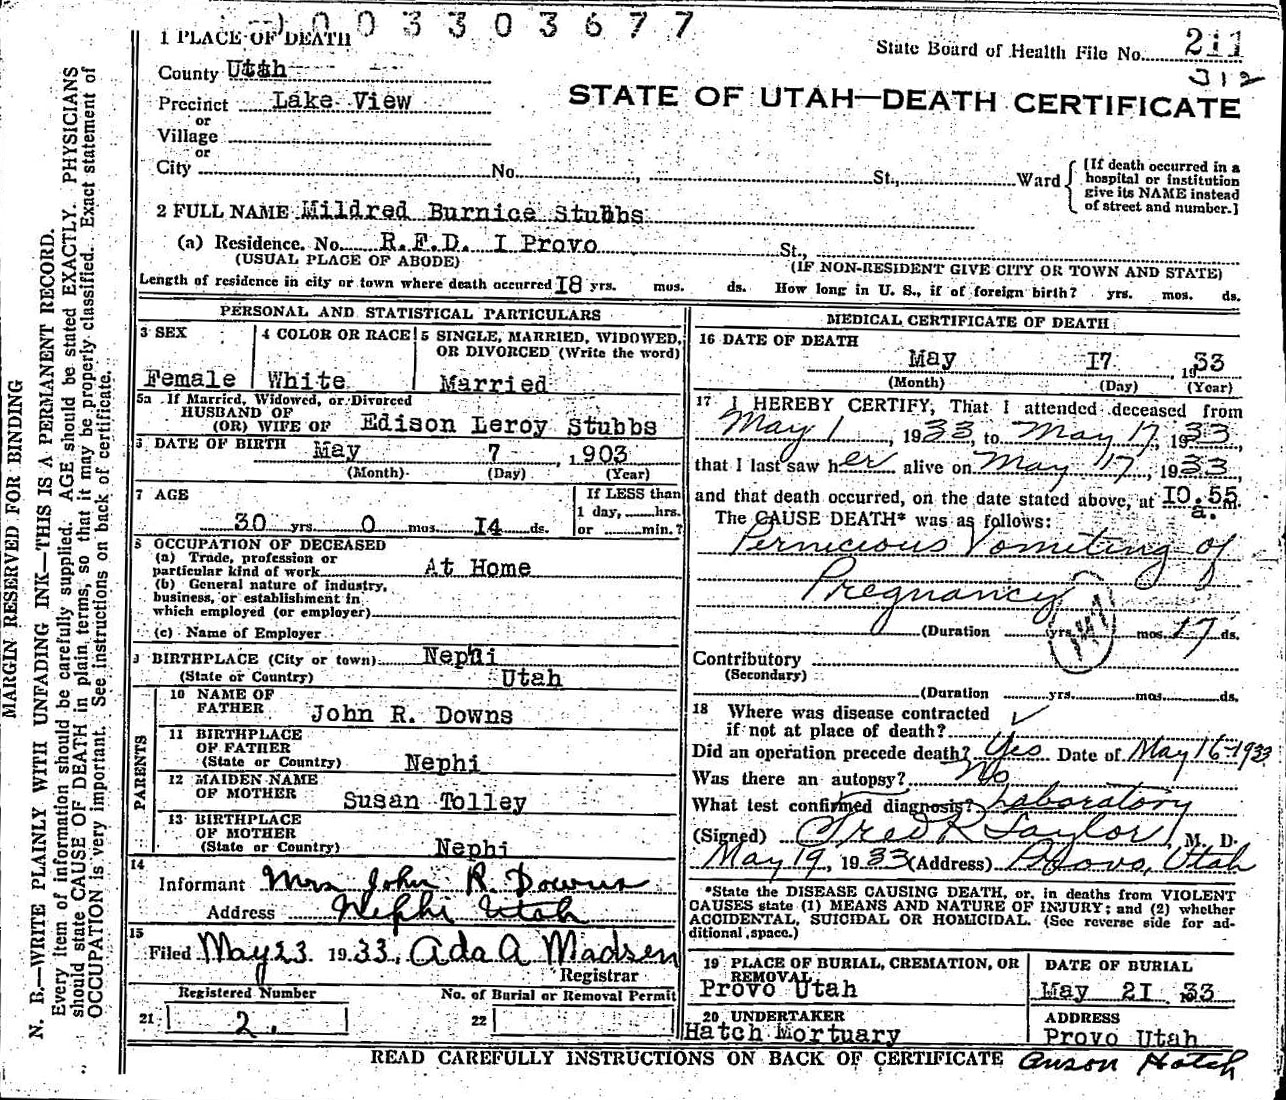 003303677
1 PLACE OF DEATH
State Board of Health File No. 211
312
County Utah
Precinct Lake View
or
Village
or
City No. , St., Ward
[If death occurred in a
hospital or institution
give its NAME instead
of street and number.]
STATE OF UTAH—DEATH CERTIFICATE
2 FULL NAME Mildred Burnice Stubbs
(a) Residence. No. R.F.D. I Provo St.,
(USUAL PLACE OF ABODE) (IF NON-RESIDENT GIVE CITY OR TOWN AND STATE)
Length of residence in city or town where death occurred I8 yrs. mos. ds. How long in U. S., if of foreign birth? yrs. mos. ds.
PERSONAL AND STATISTICAL PARTICULARS
3 SEX
Female
4 COLOR OR RACE
White
5 SINGLE, MARRIED, WIDOWED,
OR DIVORCED (Write the word)
Married
5a If Married, Widowed, or Divorced
HUSBAND OF
(OR) WIFE OF Edison Leroy Stubbs
6 DATE OF BIRTH May 7 , 1903
(Month) (Day) (Year)
7 AGE
30 yrs. 0 mos. I4 ds.
If LESS than
1 day, hrs.
or min.?
8 OCCUPATION OF DECEASED
(a) Trade, profession or
particular kind of work At Home
(b) General nature of industry,
business, or establishment in
which employed (or employer)
(c) Name of Employer
9 BIRTHPLACE (City or town) Nephi
(State or Country) Utah
PARENTS
10 NAME OF
FATHER John R. Downs
11 BIRTHPLACE
OF FATHER
(State or Country) Nephi
12 MAIDEN NAME
OF MOTHER Susan Tolley
13 BIRTHPLACE
OF MOTHER
(State or Country) Nephi
14
Informant Mrs John R. Downs
Address Nephi Utah
15
Filed May 23 1933, Ada A Madsen
Registrar
Registered Number
21 2.
No. of Burial or Removal Permit
22
MEDICAL CERTIFICATE OF DEATH
16 DATE OF DEATH
May I7 , 1933
(Month) (Day) (Year)
17 I HEREBY CERTIFY, That I attended deceased from
May 1 , 1933, to May 17, 1933,
that I last saw her alive on May 17, 1933,
and that death occurred, on the date stated above, at I0.55 m.
a.
The CAUSE DEATH* was as follows:
Pernicious Vomiting of
Pregnancy
(Duration yrs. mos. 17 ds.
Contributory
(Secondary)
(Duration yrs. mos. ds.
18 Where was disease contracted
if not at place of death?
Did an operation precede death? Yes Date of May 16-1933
Was there an autopsy? No
What test confirmed diagnosis? Laboratory
(Signed) Fred R Taylor, M. D.
May 19, 1933 (Address) Provo, Utah
*State the DISEASE CAUSING DEATH, or, in deaths from VIOLENT
CAUSES state (1) MEANS AND NATURE OF INJURY; and (2) whether
ACCIDENTAL, SUICIDAL OR HOMICIDAL. (See reverse side for ad-
ditional space.)
19 PLACE OF BURIAL, CREMATION, OR
REMOVAL
Provo Utah
DATE OF BURIAL
May 2I 33
20 UNDERTAKER
Hatch Mortuary
ADDRESS
Provo Utah
READ CAREFULLY INSTRUCTIONS ON BACK OF CERTIFICATE Anson Hatch
MARGIN RESERVED FOR BINDING
N. B.—WRITE PLAINLY WITH UNFADING INK—THIS IS A PERMANENT RECORD.
Every item of information should be carefully supplied. AGE should be stated EXACTLY. PHYSICIANS
should state CAUSE OF DEATH in plain terms, so that it may be properly classified. Exact statement of
OCCUPATION is very important. See instructions on back of certificate.